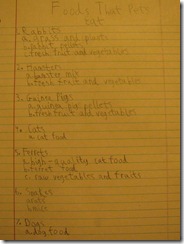 Foods That Pets
eat
1. Rabbits
a. grass and plants
b. rabbit pellets
c. fresh fruit and vegetables
2. Hamsters
a. hamster mix
b. fresh fruit and vegetables
3. Guinea Pigs
a. guinea pig pellets
b. fresh fruit and vegetables
4. Cats
a. cat food
5. Ferrets
a. high-quality cat food
b. ferret food
c. raw vegetables and fruits
6. Snakes
a. mice
7. Dogs
a. dog food